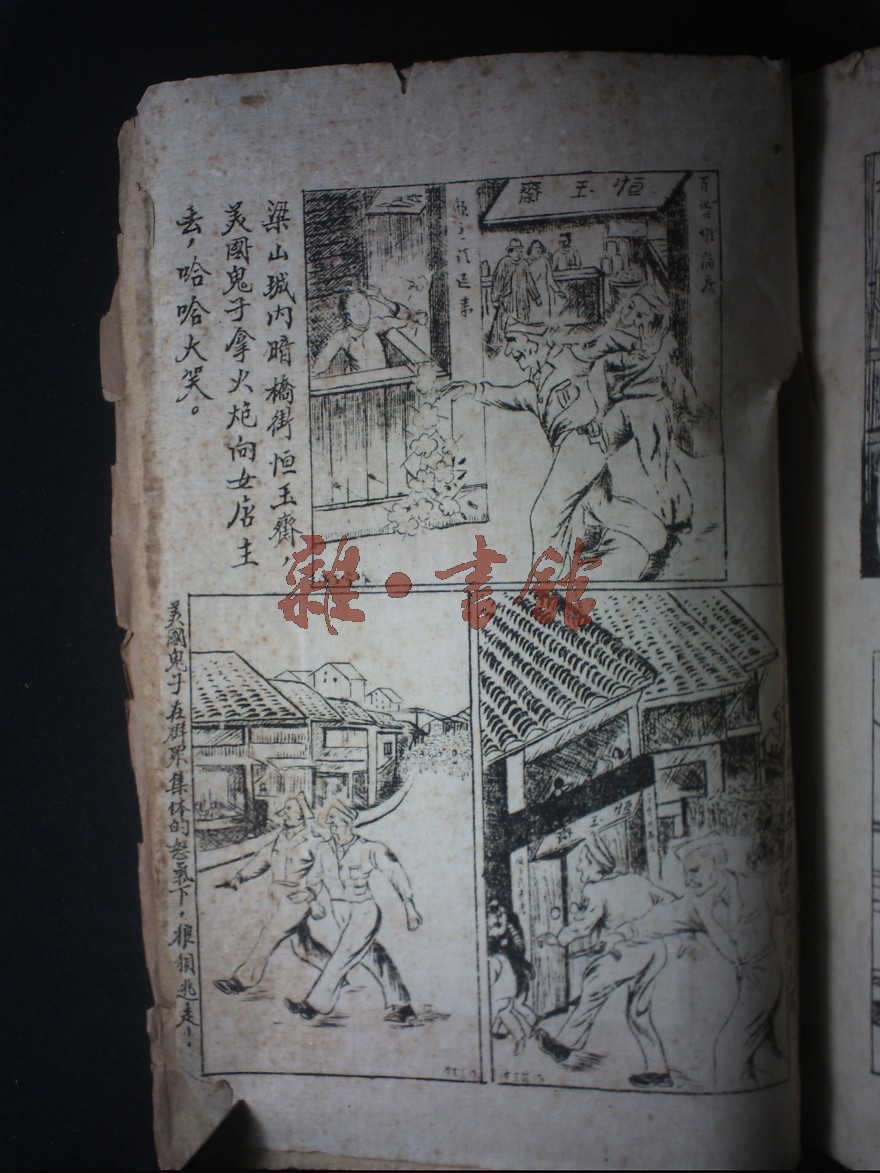 梁山城内暗橋街恒玉齋，
美國鬼子拿火炮向女店主
丢，哈哈大笑。
恒玉齋
美國鬼子在群眾集体的怒氣下，狼狽逃走！
恒玉齋
雜·書館